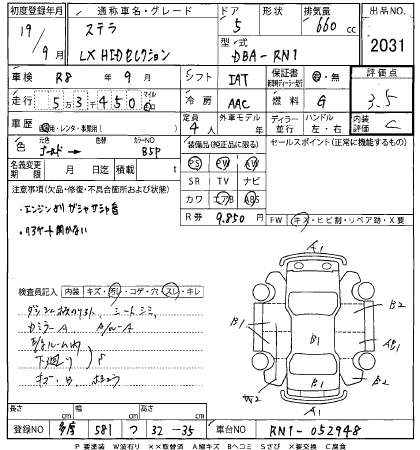 初度登録年月 通称車名・グレード ドア 形状 排気量 出品NO
19/9月 ステラ 5 660cc 2031
LX HIDセレクション 型式 DBA-RN1
車検 R8年9月 シフト IAT 保証書 有・無 評価点
走行 53450 マイル 冷房 AAC 燃料 G 3.5
車歴 自家用・レンタ・事業用( ) 定員 4人 外車モデル ディーラー 並行 ハンドル 左・右 内装 C
色 ゴールド 色替 カラーNO B5P 装備品(純正品に限る) セールスポイント(正常に機能するもの)
名義変更期限 月 日 積載 t PS PW AW
注意事項(欠品・修復・不具合箇所および状態) SR TV ナビ
・エンジンより ガシャガシャ音 カワ エアB ABS
・リアゲート開かない R券 9,850円
FW キズ・ヒビ割・リペア跡・X要
検査員記入 内装 キズ・汚レ・コゲ・穴 スレ・キレ
シートシミ
下廻り
A1
B1 B2
B1 B1
B2
A1
長さ cm 幅 cm 高さ cm
登録NO 多摩 581 つ 32-35 車台NO RN1-052948
P要塗装 W波有り XX取替済 A線キズ Bヘコミ Sさび X要交換 C腐食